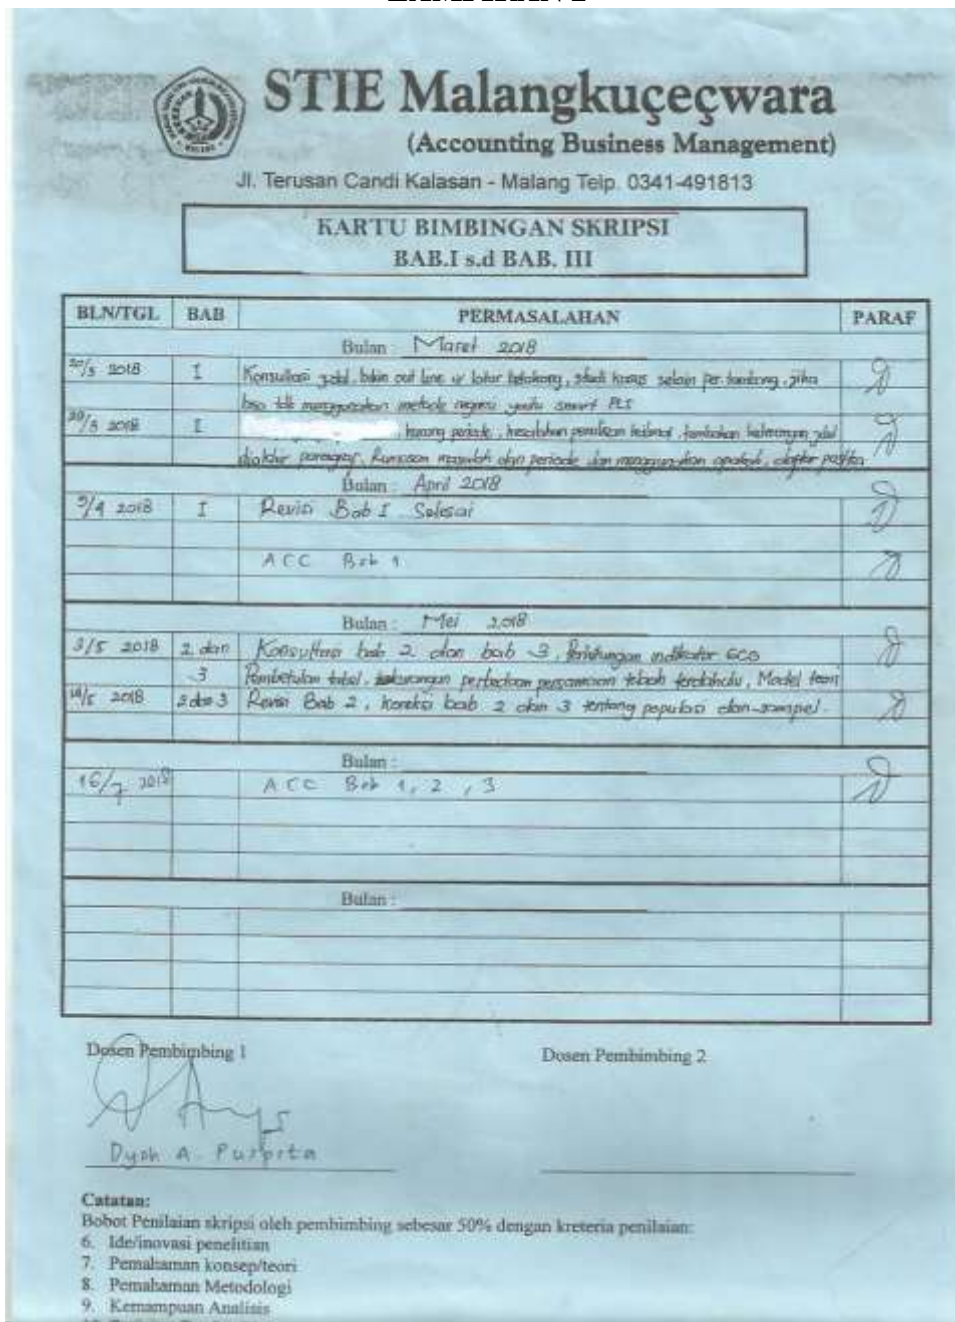 STIE Malangkuçeçwara
(Accounting Business Management)
Jl. Terusan Candi Kalasan - Malang Telp. 0341-491813
KARTU BIMBINGAN SKRIPSI
BAB.I s.d BAB. III
BLN/TGL BAB PERMASALAHAN PARAF
Bulan : Maret 2018
20/3 2018 I Konsultasi judul, bikin out line, latar belakang, studi kasus selain per. tambang, jika
bisa tdk menggunakan metode regresi yaitu smart PLS
I , kurang periode, kesalahan penulisan kalimat, tambahan
diakhir paragraf, Rumusan masalah dan periode dan menggunakan apakah, daftar pustaka
Bulan : April 2018
2018 I Revisi Bab I Selesai
ACC Bab 1
Bulan : Mei 2018
3/5 2018 2 dan Konsultasi bab 2 dan bab 3, Perhitungan indikator GCG
3 Pembetulan tabel, kekurangan perbedaan persamaan tebah terdahulu, Model teori
2018 2 dan 3 Revisi Bab 2, koreksi bab 2 dan 3 tentang populasi dan sampel.
Bulan :
16/7 2018 ACC Bab 1, 2, 3
Bulan :
Dosen Pembimbing 1 Dosen Pembimbing 2
Dyah A. Puspita
Catatan:
Bobot Penilaian skripsi oleh pembimbing sebesar 50% dengan kreteria penilaian:
6. Ide/inovasi penelitian
7. Pemahaman konsep/teori
8. Pemahaman Metodologi
9. Kemampuan Analisis